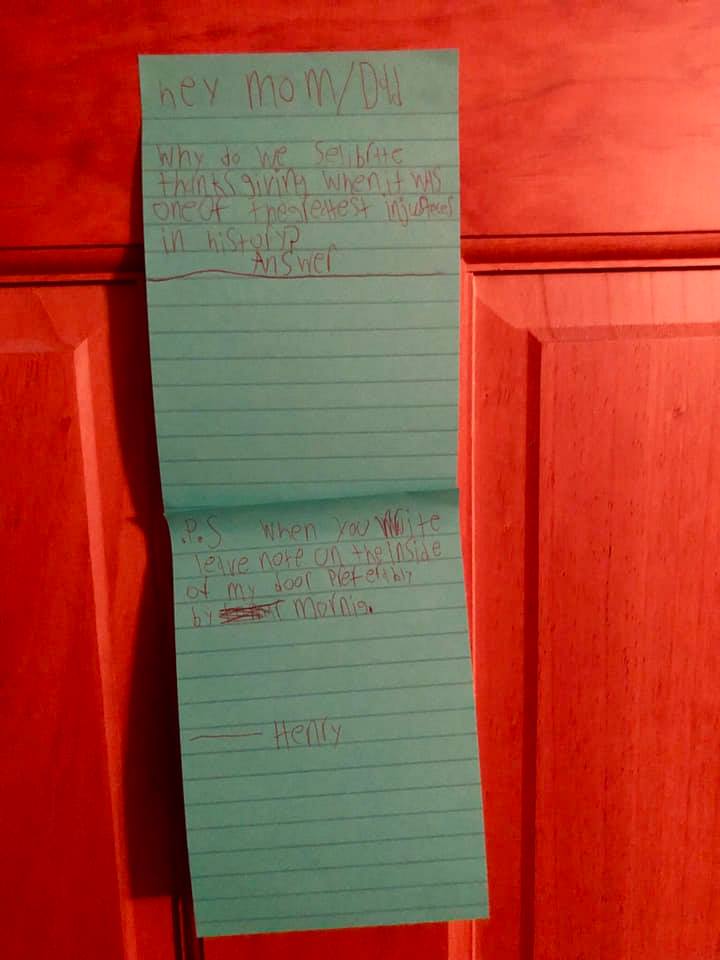 hey mom/Dad
Why do we selibrate
thinks giving when it was
one of the gleatest injusteces
in history?
Answer
.P.S when you Write
leave note on the inside
of my door Preferably
by mornig.
— Henry